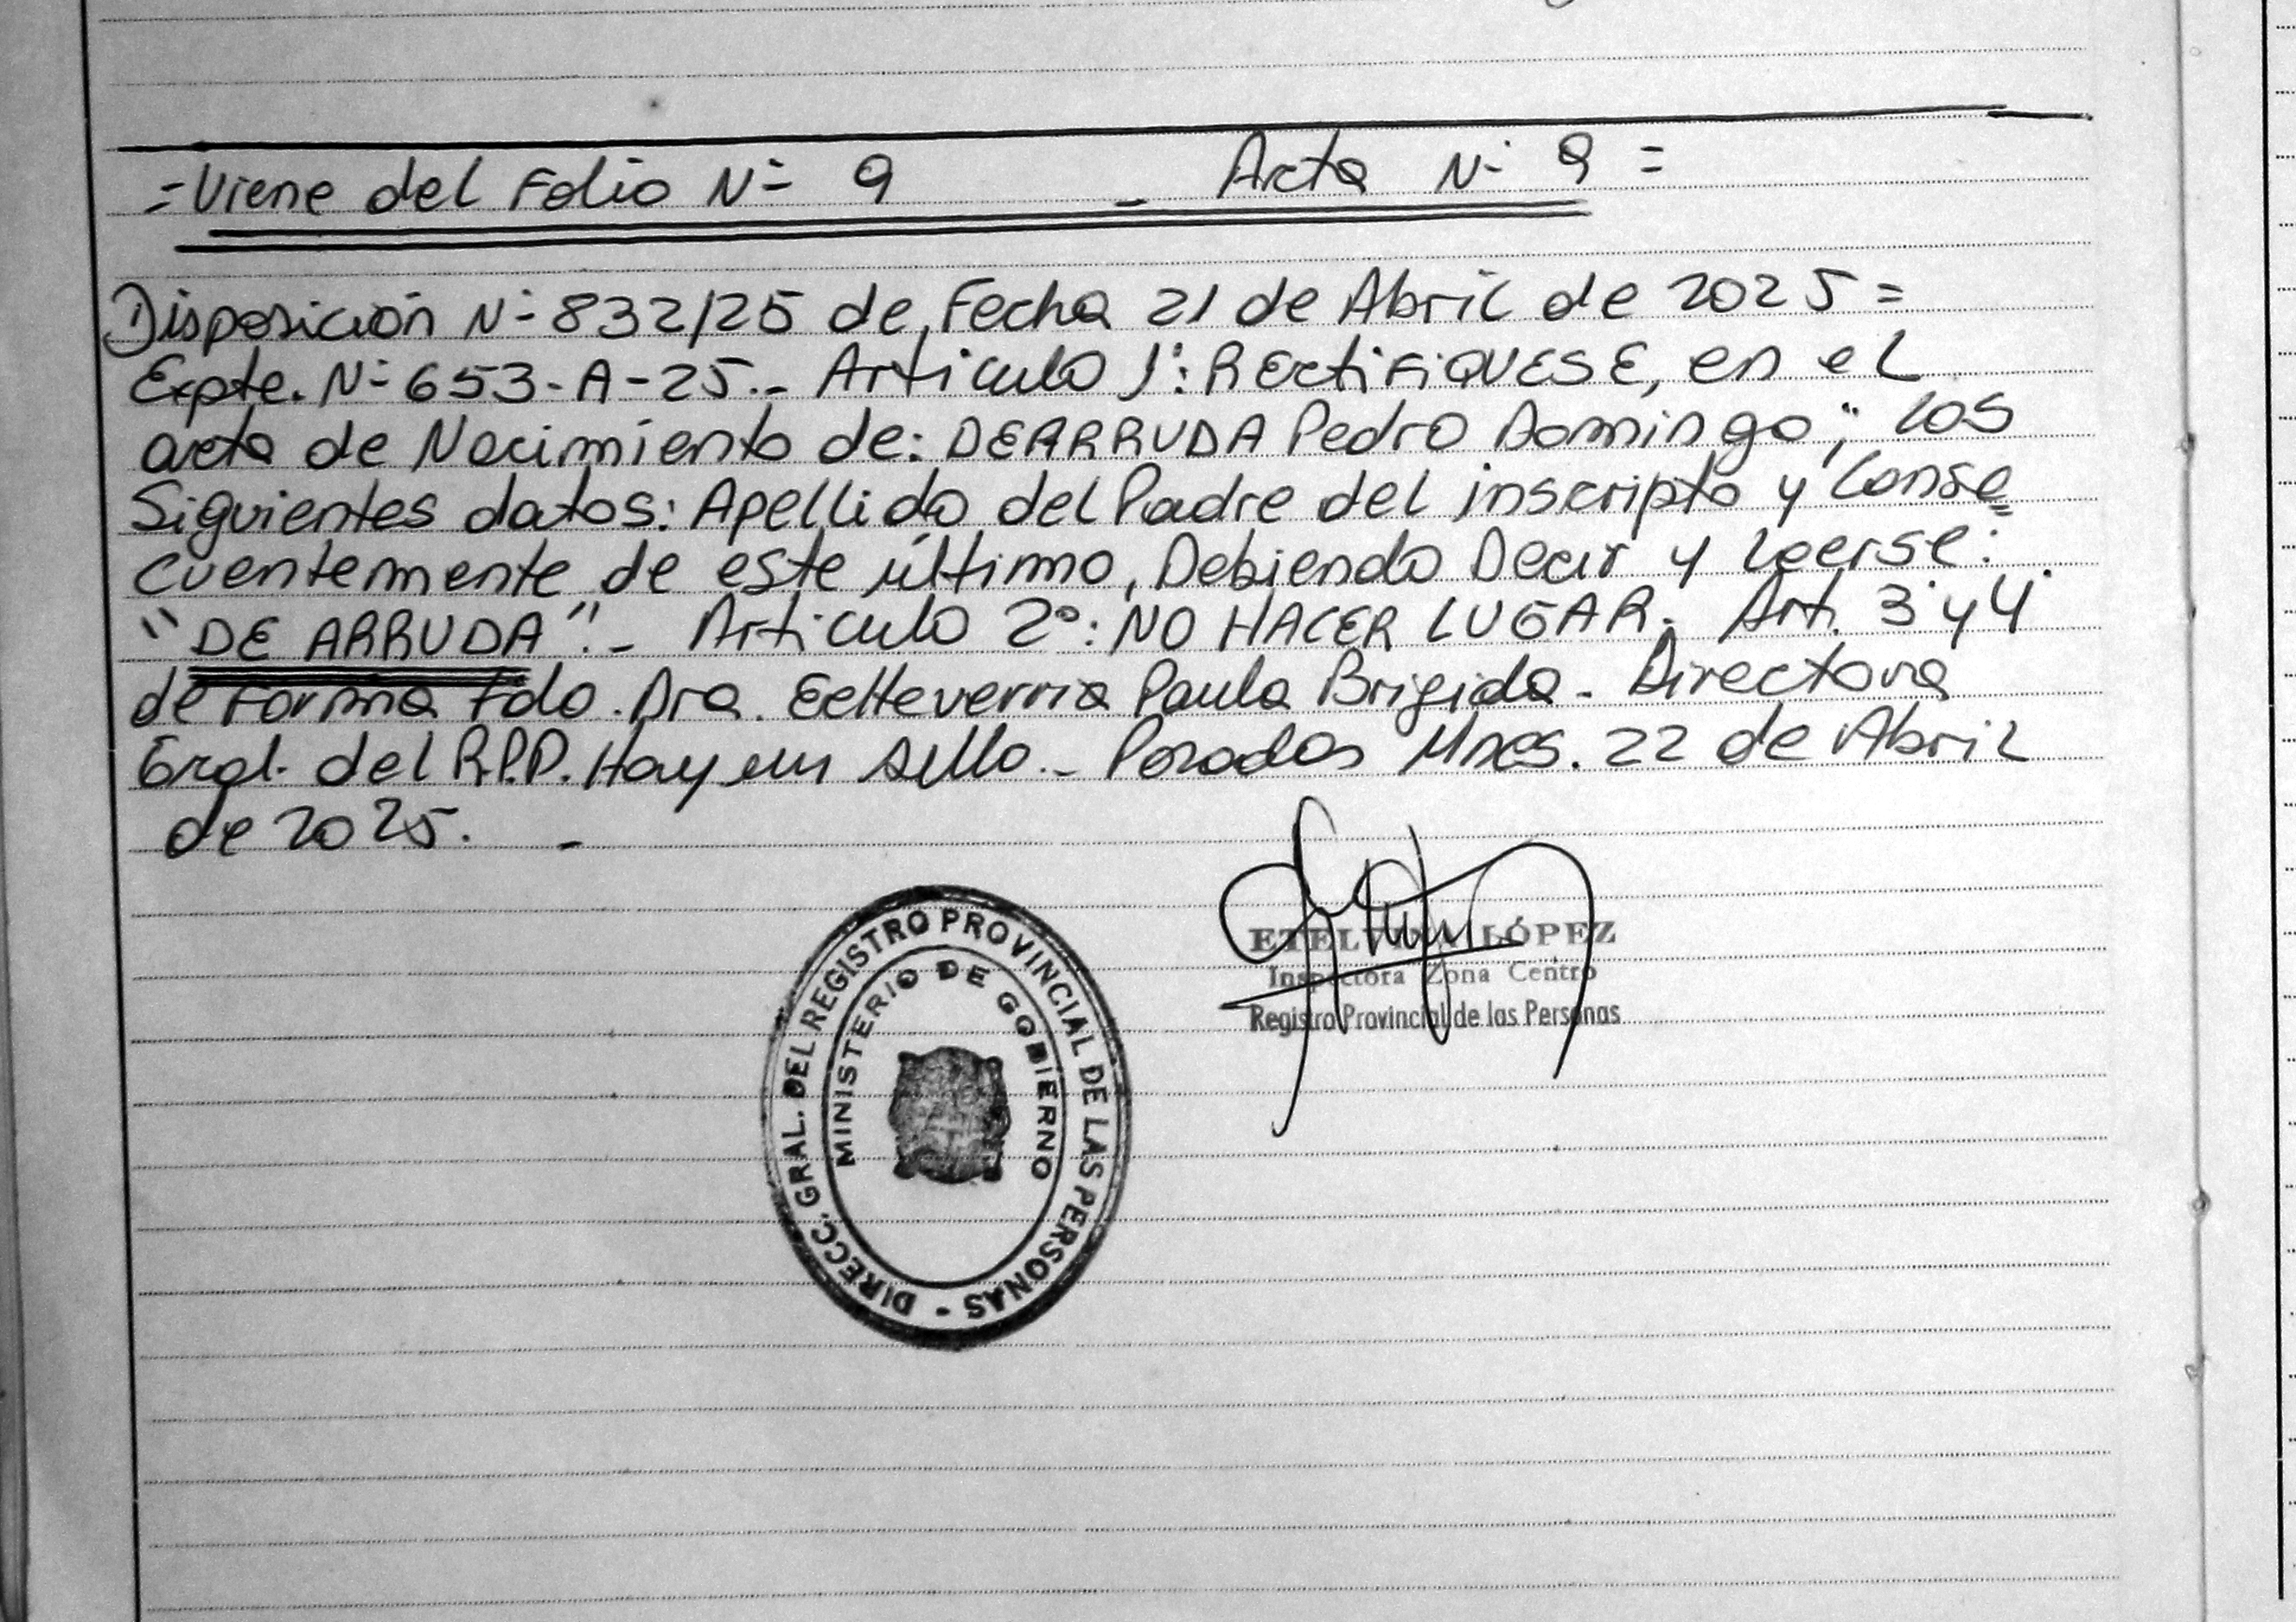 =Viene del Folio N- 9 _ Acta N- 9 =
Disposición N- 832/25 de, Fecha 21 de Abril de 2025 =
Expte. N- 653-A-25.- Artículo 1°: RECTIFIQUESE, en el
acta de Nacimiento de: DEARRUDA Pedro Domingo", los
Siguientes datos: Apellido del Padre del inscripto y Conse
cuentemente de este último, Debiendo Decir y Leerse:
"DE ARRUDA".- Artículo 2°: NO HACER LUGAR. Art. 3 y 4
de Forma Fdo. Dra. Echeverria Paula Brigida - Directora
Gral. del R.P.P. Hay un sello.- Posadas Mnes. 22 de Abril
de 2025. -
ETELVINA LÓPEZ
Inspectora Zona Centro
Registro Provincial de las Personas
DIRECC. GRAL. DEL REGISTRO PROVINCIAL DE LAS PERSONAS -
MINISTERIO DE GOBIERNO